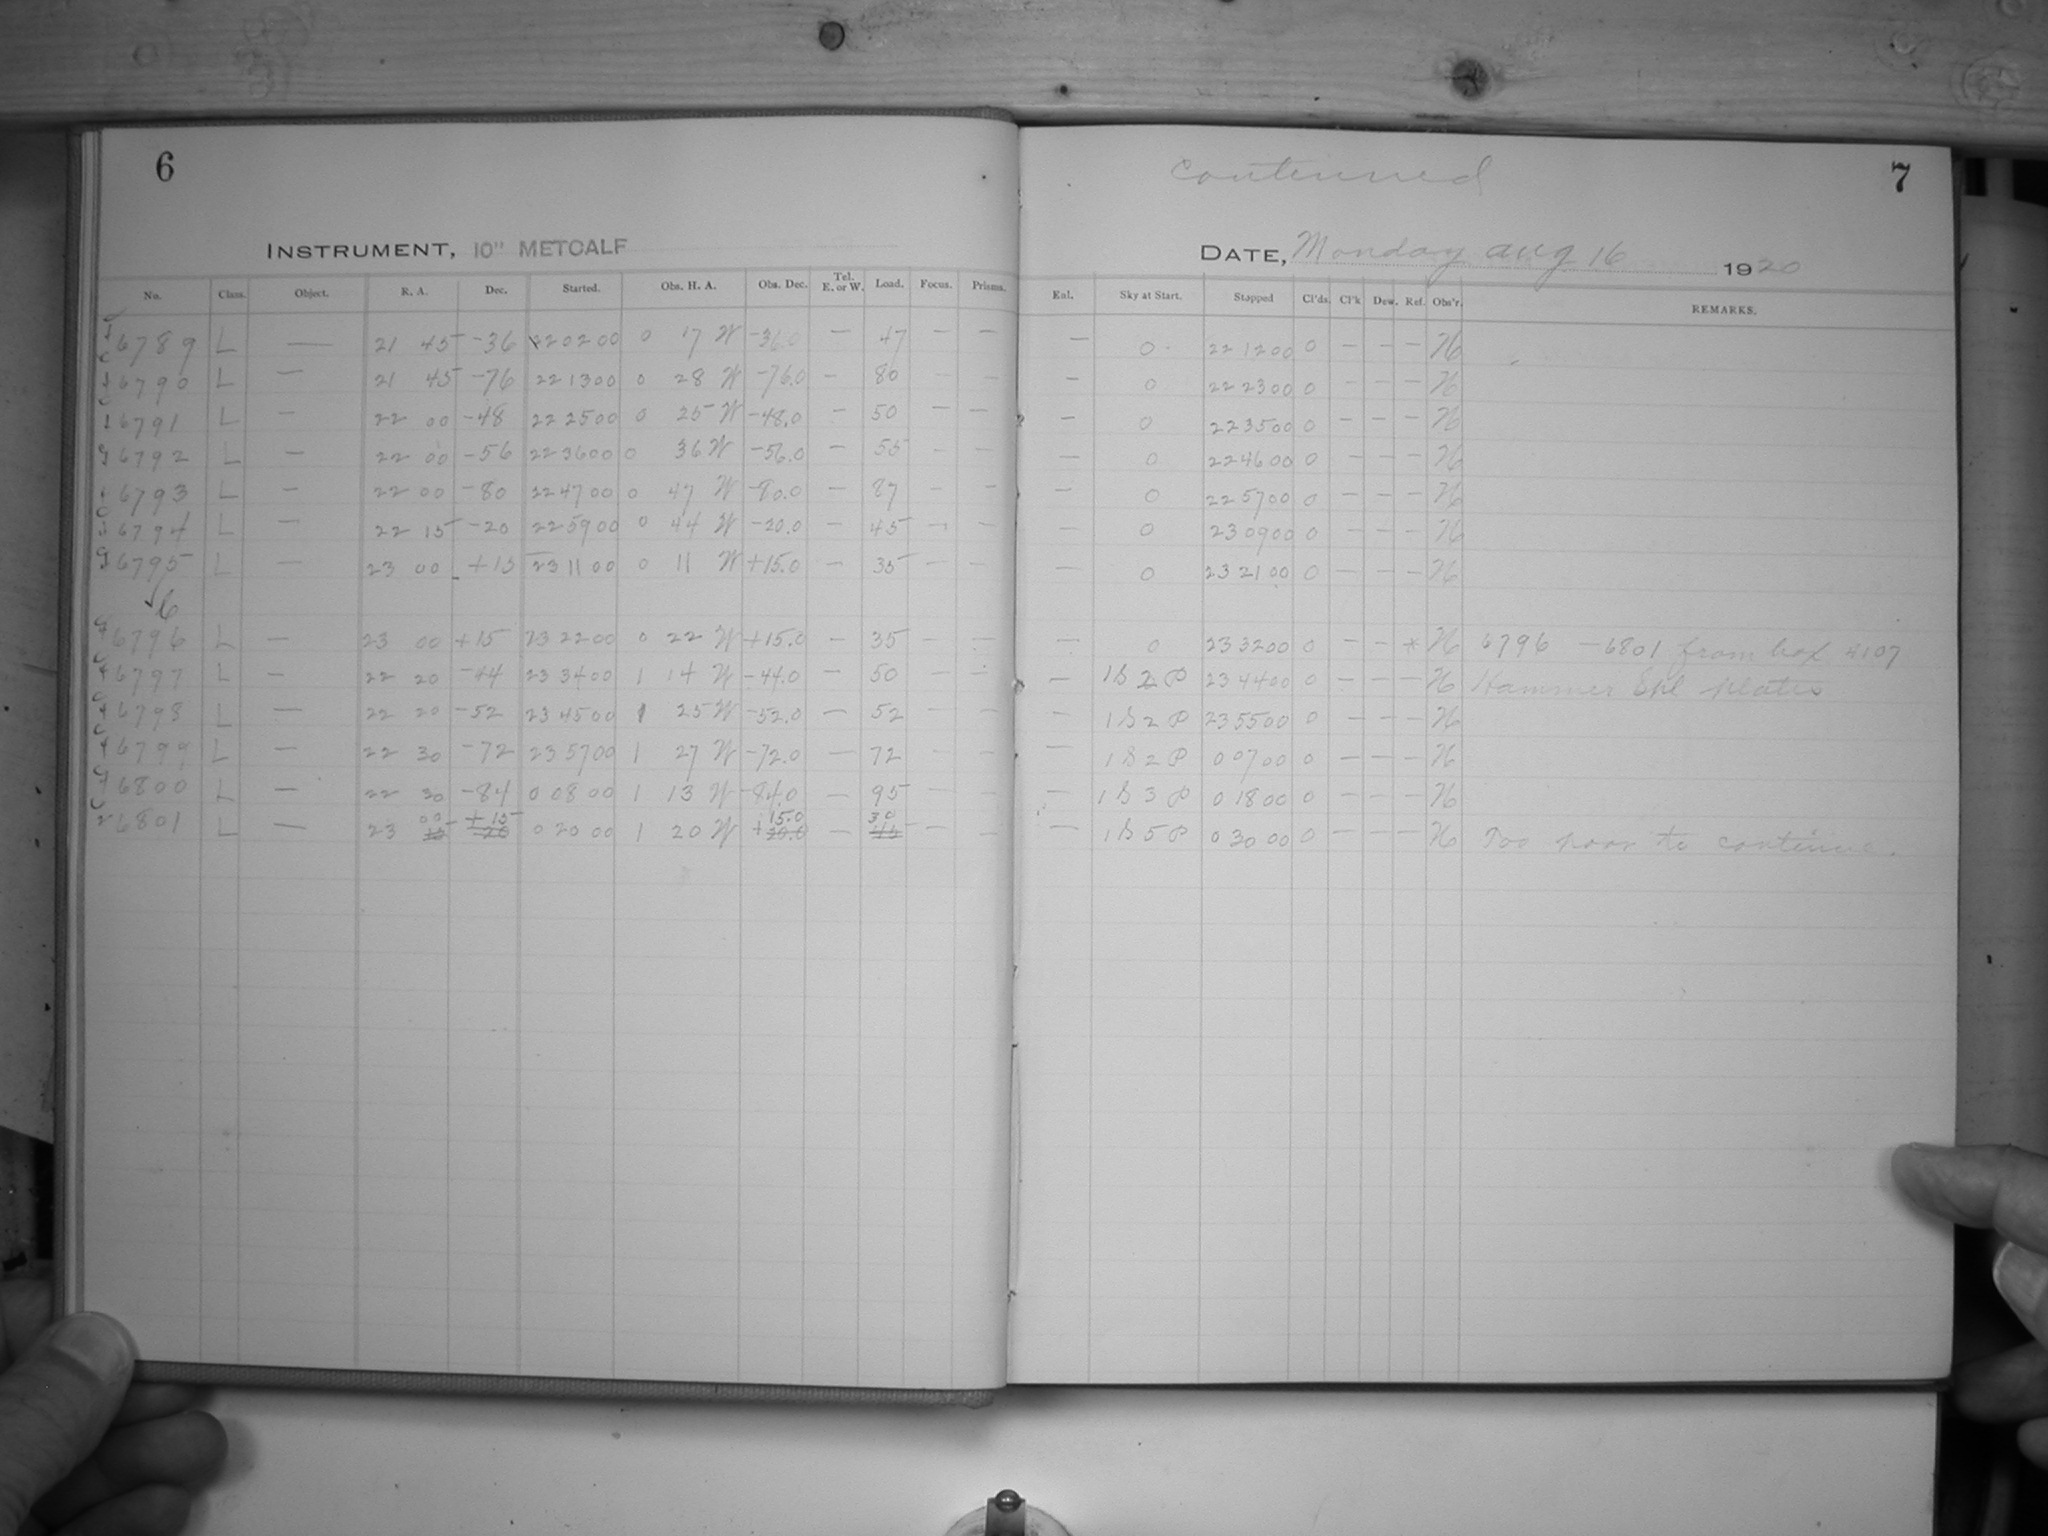 6
INSTRUMENT, 10" METCALF
No. Class. Object. R. A. Dec. Started. Obs. H. A. Obs. Dec. Tel. E. or W. Load. Focus. Prisms.
6789 L — 21 45 -36 220200 0 17 W -36.0 — 47 — —
6790 L — 21 45 -76 221300 0 28 W -76.0 — 80 — —
6791 L — 22 00 -48 222500 0 25 W -48.0 — 50 — —
6792 L — 22 00 -56 223600 0 36 W -56.0 — 55 — —
6793 L — 22 00 -80 224700 0 47 W -80.0 — 87 — —
6794 L — 22 15 -20 225900 0 44 W -20.0 — 45 — —
6795 L — 23 00 +15 231100 0 11 W +15.0 — 35 — —
√6
6796 L — 23 00 +15 232200 0 22 W +15.0 — 35 — —
6797 L — 22 20 -44 233400 1 14 W -44.0 — 50 — —
6798 L — 22 20 -52 234500 1 25 W -52.0 — 52 — —
6799 L — 22 30 -72 235700 1 27 W -72.0 — 72 — —
6800 L — 22 30 -84 0 08 00 1 13 W -84.0 — 95 — —
6801 L — 23 00 +15 0 20 00 1 20 W +15.0 — 30 — —
Contenued
7
DATE, Monday Aug 16 1920
Enl. Sky at Start. Stopped Cl'ds. Cl'k Dew. Ref. Obs'r. REMARKS.
— 0 221200 0 — — — H
— 0 222300 0 — — — H
— 0 223500 0 — — — H
— 0 224600 0 — — — H
— 0 225700 0 — — — H
— 0 230900 0 — — — H
— 0 232100 0 — — — H
— 0 233200 0 — — * H 6796 — 6801 from box 4107
— 1S2P 234400 0 — — — H Hammer Spl plates
— 1S2P 235500 0 — — — H
— 1S2P 0 07 00 0 — — — H
— 1S3P 0 18 00 0 — — — H
— 1S5P 0 30 00 0 — — — H Too poor to continue.